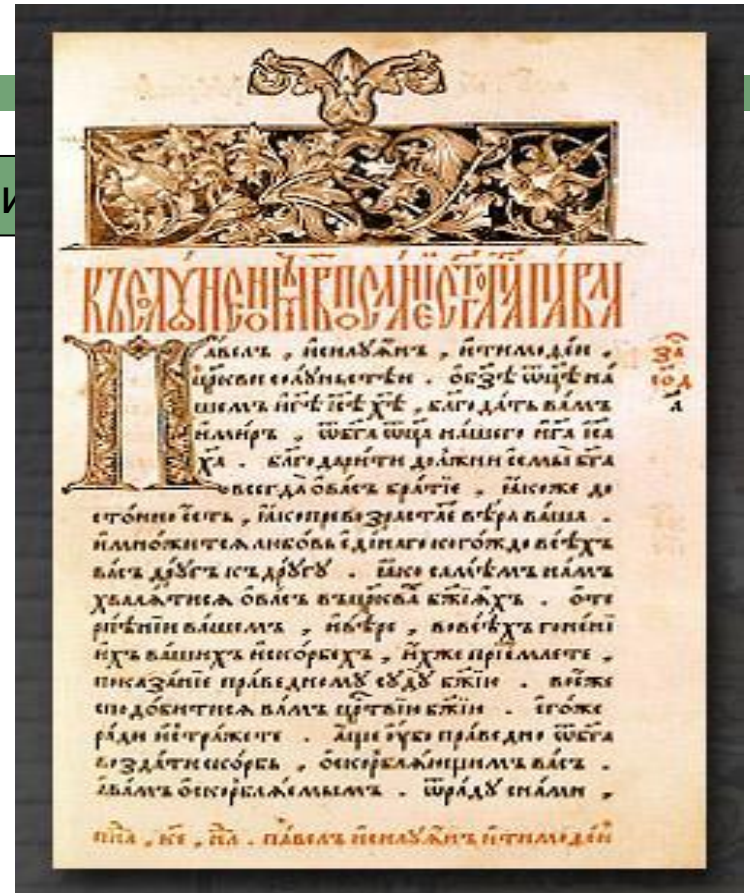 и
КЪСОЛꙊНЕНѠМЪ В҃ ПОСЛАНІЕ СТ҃ГО АП҃ЛА ПА́ВЛА
Па́велъ , и҆силꙋа́нъ , и҆тимоѳе́й ,
цр҃кви солꙋ́ньстѣй . ѻ҆бз҃ѣ ѿц҃ѣ на́
шемъ и҆г҃ѣ і҆с҃ѣ х҃ѣ , бл҃года́ть ва́мъ
и҆ми́ръ , ѿбг҃а ѿц҃а на́шего и҆г҃а і҆с҃а
х҃а . благодари́ти до́лжни є҆смы̀ бг҃а
всегда̀ ѻ҆ва́съ бра́тїе , ꙗ҆́коже до
сто́йно є҆́сть , ꙗ҆́ко превозраста́е вѣ́ра ва́ша .
и҆мно́житсѧ любо́вь є҆ди́наго кого́ждо всѣ́хъ
ва́съ дрꙋ́гъ къ дрꙋ́гꙋ . ꙗ҆́ко самѣ́мъ на́мъ
хвали́тисѧ ѻ҆ва́съ въцр҃ква бж҃їѧхъ . ѻ҆те
рпѣ́нїи ва́шемъ , и҆вѣ́ре , вовсѣ́хъ гоне́нї
и҆хъ ва́шихъ и҆ско́рбехъ , и҆́хже прїе́млете ,
показа́нїе пра́ведномꙋ сꙋдꙋ̀ бж҃їю . воє҆́же
сподо́битисѧ ва́мъ црⷭ҇твїю бж҃їю . є҆го́же
ра́ди и҆стра́жете . а҆́ще ᲂу҆́бо пра́ведно ѿбг҃а
возда́ти ско́рбь , ѻ҆скорблѧ́ющимъ ва́съ .
а҆ва́мъ ѻ҆скорблѧ́емымъ . ѿра́дꙋ сна́ми ,
За
а
па́велъ и҆силꙋа́нъ и҆тимоѳе́й